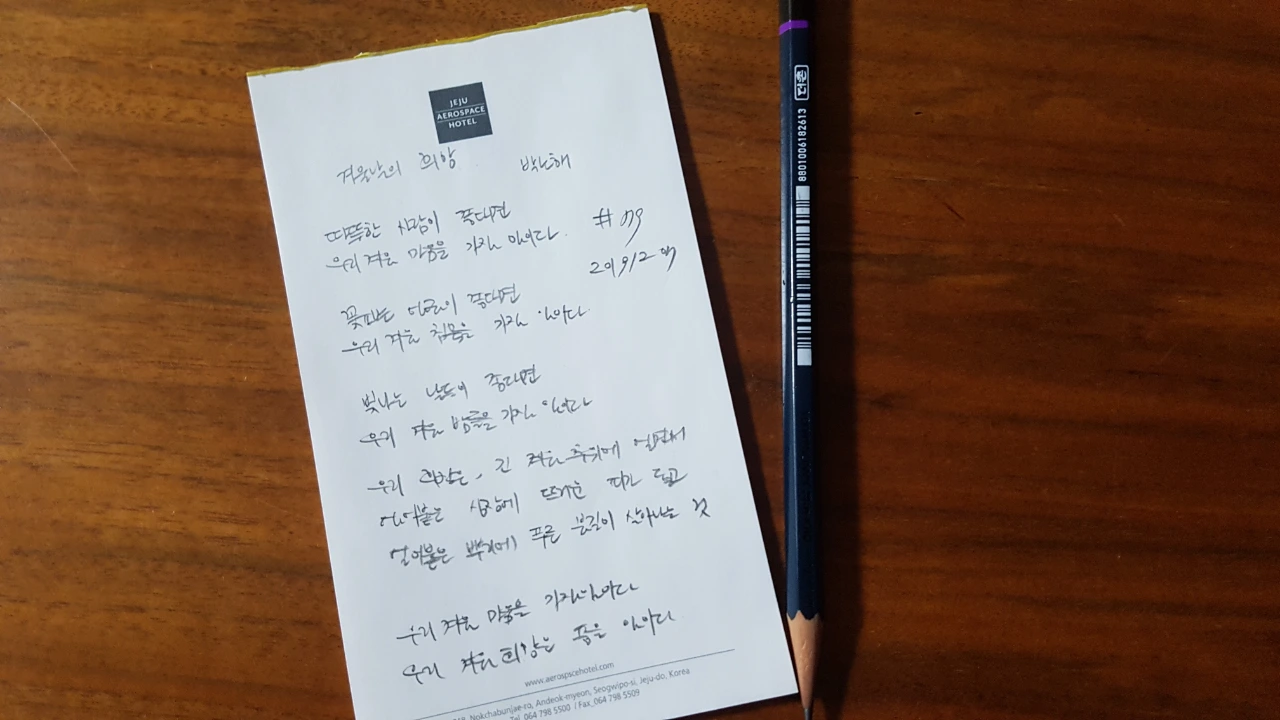 JEJU
AEROSPACE
HOTEL
겨울날의 희망 박노해
따뜻한 사람이 좋다면
우리 겨울 마음을 가질 일이다.
#
2019/2
꽃피는 얼굴이 좋다면
우리 겨울 침묵을 가질 일이다.
빛나는 날들이 좋다면
우리 겨울 밤들을 가질 일이다
우리 희망은, 긴 겨울 추위에 얼면서
얼어붙은 심장에 뜨거운 피가 돌고
얼어붙은 뿌리에 푸른 불길이 살아나는 것
우리 겨울 마음을 가질 일이다
우리 겨울 희망을 품을 일이다
www.aerospacehotel.com
Nokchabunjae-ro, Andeok-myeon, Seogwipo-si, Jeju-do, Korea
Tel_064 798 5500 / Fax_064 798 5509
더존
8801006182613